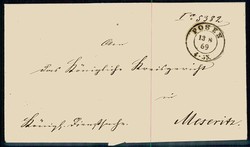 No 5382
POSEN
13 8
69
4-5N.
An
das Königliche Kreisgericht
zu
Königl. Dienstsache.
Meseritz